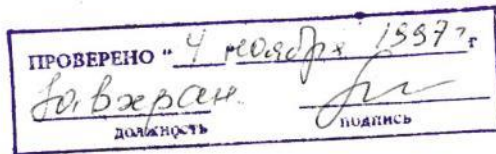 ПРОВЕРЕНО "4" ноября 1997 г
Зав. хран.
должность подпись